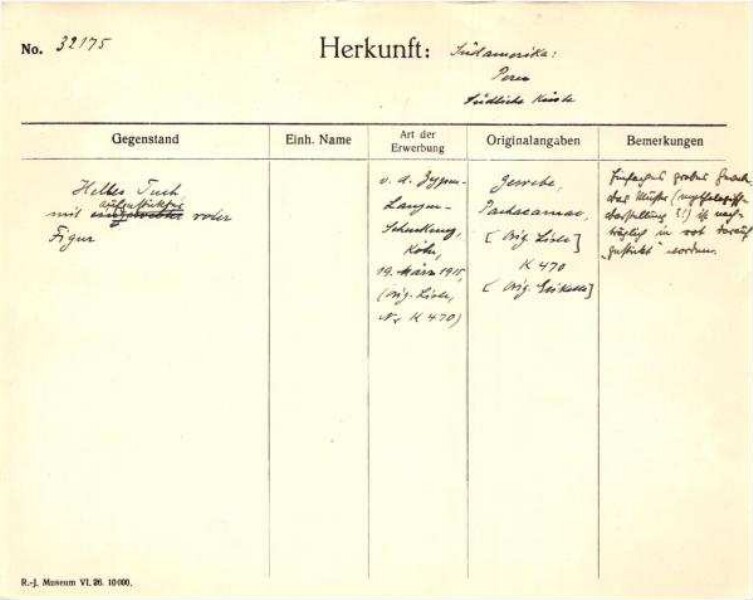 No. 32175
Herkunft: Südamerika:
Peru
Südliche Küste
Gegenstand
Einh. Name
Art der
Erwerbung
Originalangaben
Bemerkungen
Helles Tuch
aufgestickter
mit roter
Figur
v. d. Zypen-
Langen-
Schenkung,
Köln,
19. März 1915,
(Orig.-Liste,
Nr K 470)
Gewebe,
Pachacamac,
[Orig. Liste]
K 470
[Orig. Etikette]
Einfarbiges grobes
das Muster (mytholog.
darstellung ?!) ist nach-
träglich in rot darauf
"gestickt" worden.
R.-J. Museum VI. 26. 10000.